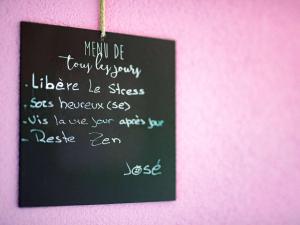 MENU DE
tous les jours
. Libère Le Stress
. Sois heureux(se)
. Vis la vie jour après jour
- Reste Zen
José